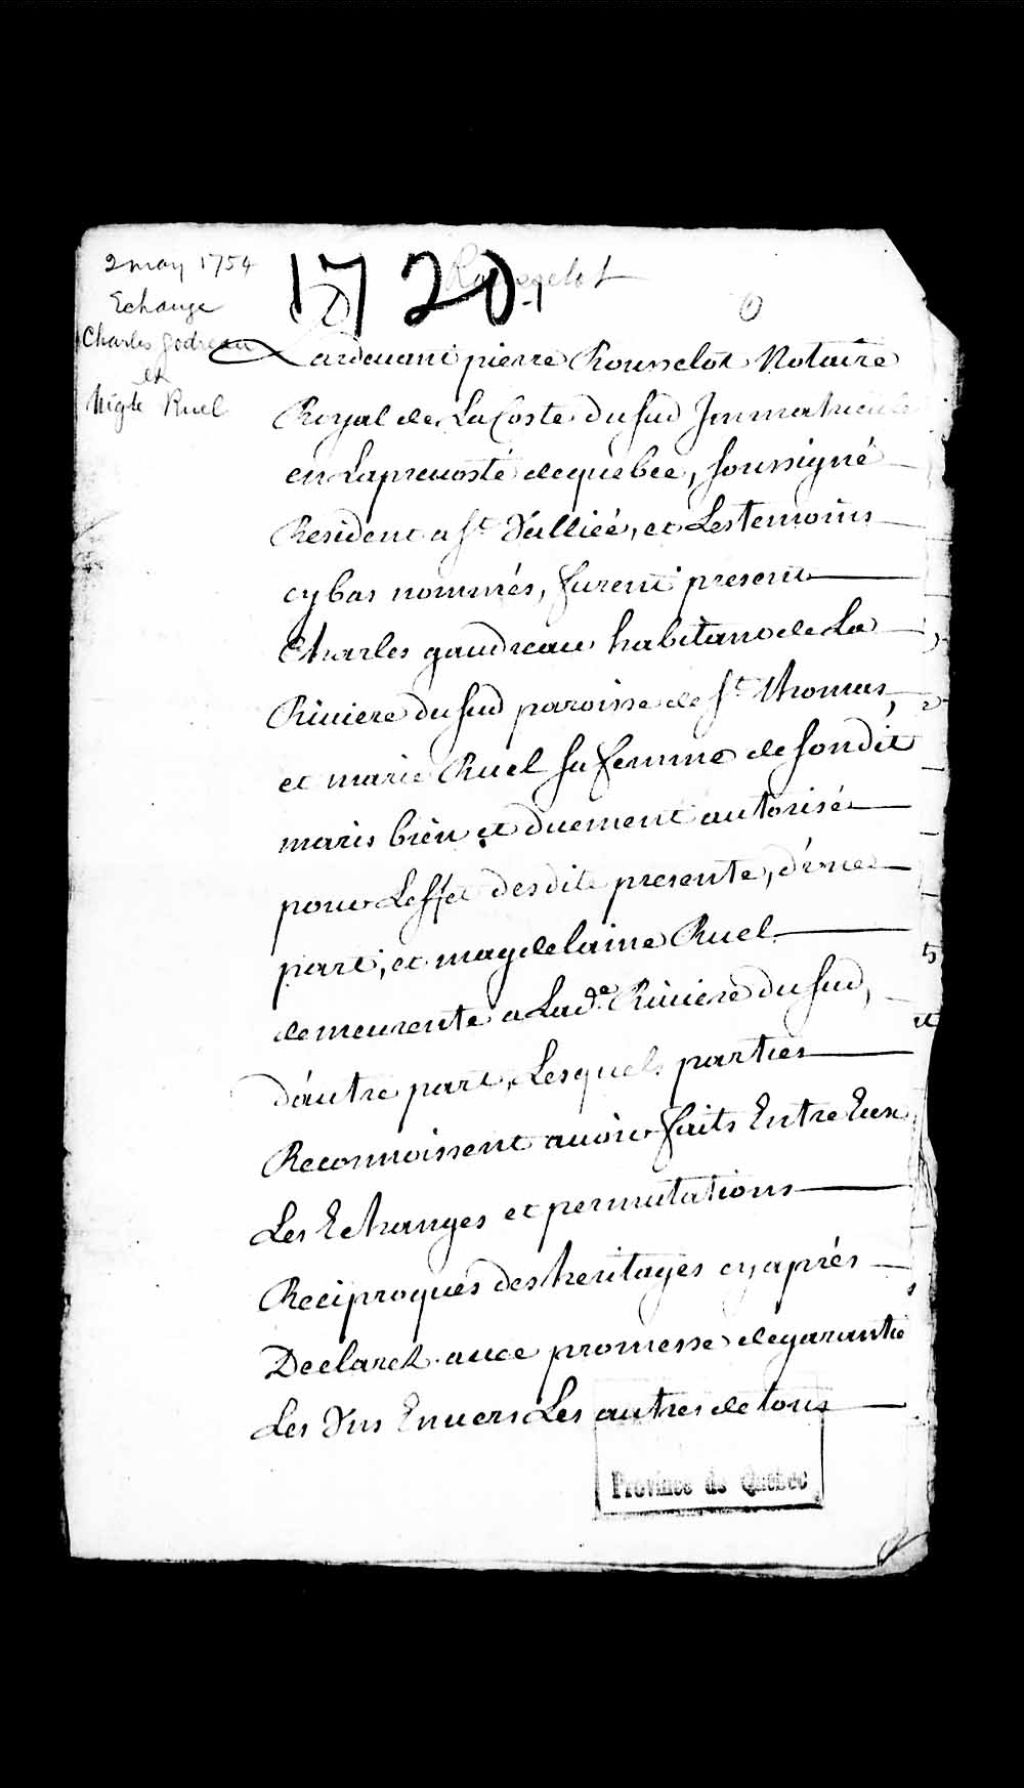 2 may 1754
Echange
Charles Godreau
et
Migle Ruel
1720
Rousselot
Pardevant pierre Rousselot Notaire
Royal de La Coste du Sud Immatriculé
en La prevosté de quebec, soussigné
Resident a St. Vallieé, et Les temoins
cy bas nommés, furent present
Charles gaudreau habitant de La
Riviere du Sud paroisse de St. thomas,
et marie Ruel sa femme de son dit
maris bien et duement autorisé
pour L'effet des dite presente, d'une
part, et magdelaine Ruel
demeurente a Lade. Riviere du Sud,
d'autre part, Lesquels parties
Reconnoissent avoir faits Entre Eux
Les Echanges et permutations
Reciproques des heritages cy aprés
Declarez avec promesse de garantie
Les Uns Envers Les autres de tous
Province de Québec